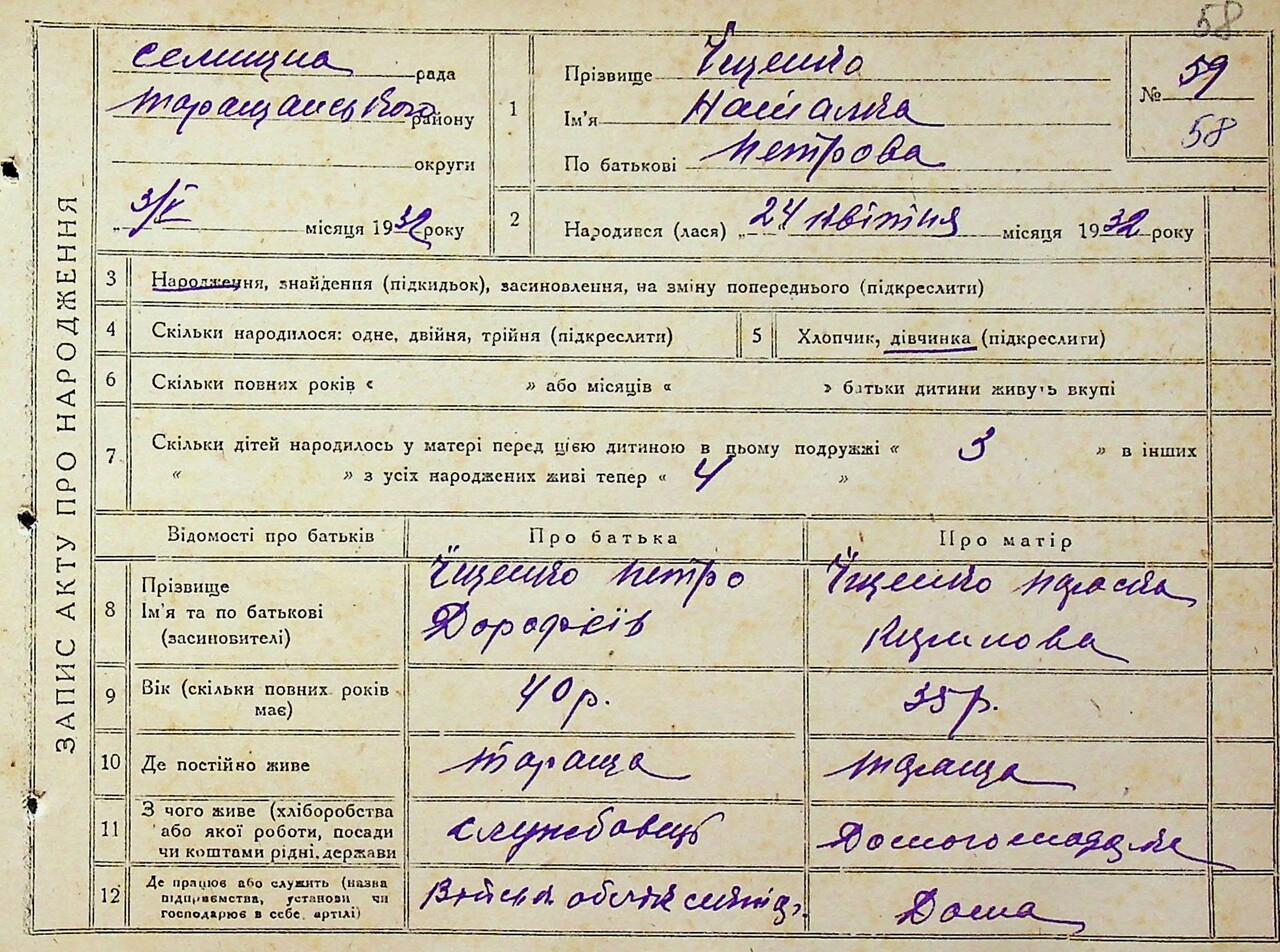 58
ЗАПИС АКТУ ПРО НАРОДЖЕННЯ
селищна рада
Таращанського району
округи
„ 3/V місяця 1932 року
1
Прізвище Їщенко
Ім'я Наталка
По батькові Петрова
№ 59
58
2
Народився (лася) „ 24 „ квітня місяця 1932 року
3 Народження, знайдення (підкидьок), засиновлення, на зміну попереднього (підкреслити)
4 Скільки народилося: одне, двійня, трійня (підкреслити)
5 Хлопчик, дівчинка (підкреслити)
6 Скільки повних років « » або місяців « » батьки дитини живуть вкупі
7 Скільки дітей народилось у матері перед цією дитиною в цьому подружжі « 3 » в інших
« » з усіх народжених живі тепер « 4 »
Відомості про батьків Про батька Про матір
8 Прізвище
Ім'я та по батькові
(засиновителі)
Їщенко Петро
Дорофіїв
Їщенко Параска
9 Вік (скільки повних років
має)
40 р. 35 р.
10 Де постійно живе Тараща Тараща
11 З чого живе (хліборобства
або якої роботи, посади
чи коштами рідні, держави
службовець
12 Де працює або служить (назва
підприємства, установи чи
господарює в себе, артілі)
Дома